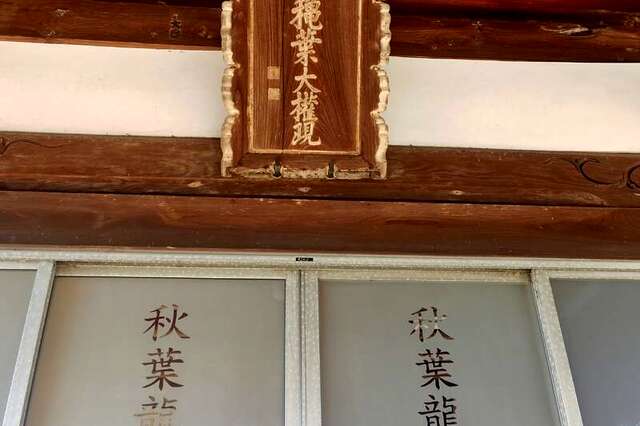 龝葉大權現
秋葉龍
秋葉龍